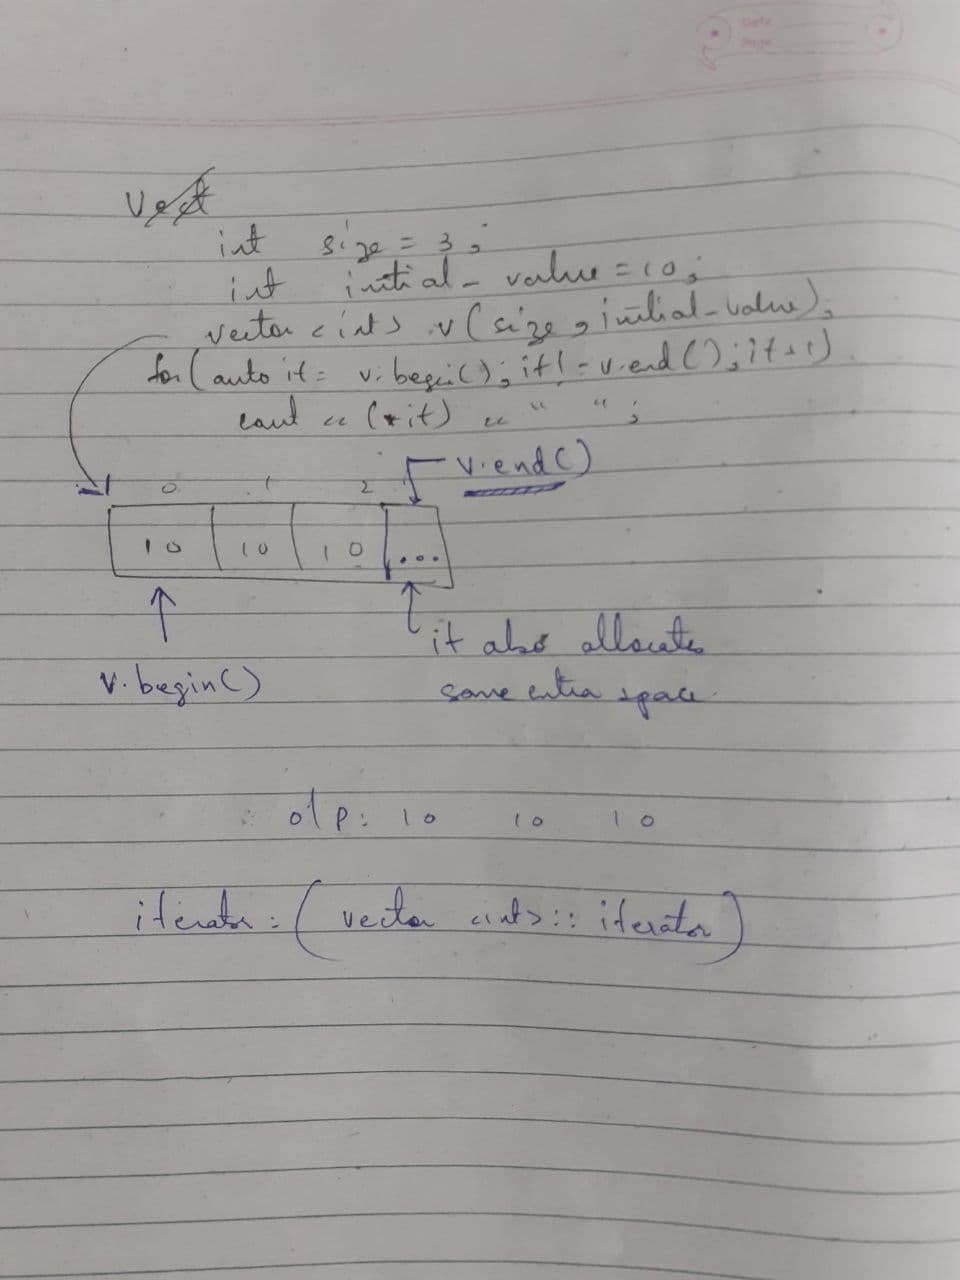 Date
Page
Vect
int size = 3;
int initial_value = 10;
vector <int> v(size, initial_value);
for(auto it = v.begin(); it != v.end(); it++)
cout << (*it) << " ";
v.end()
0 1 2
10 10 10 ...
it also allocates
v.begin()
some extra space.
o/p: 10 10 10
iterator : (vector <int>:: iterator)